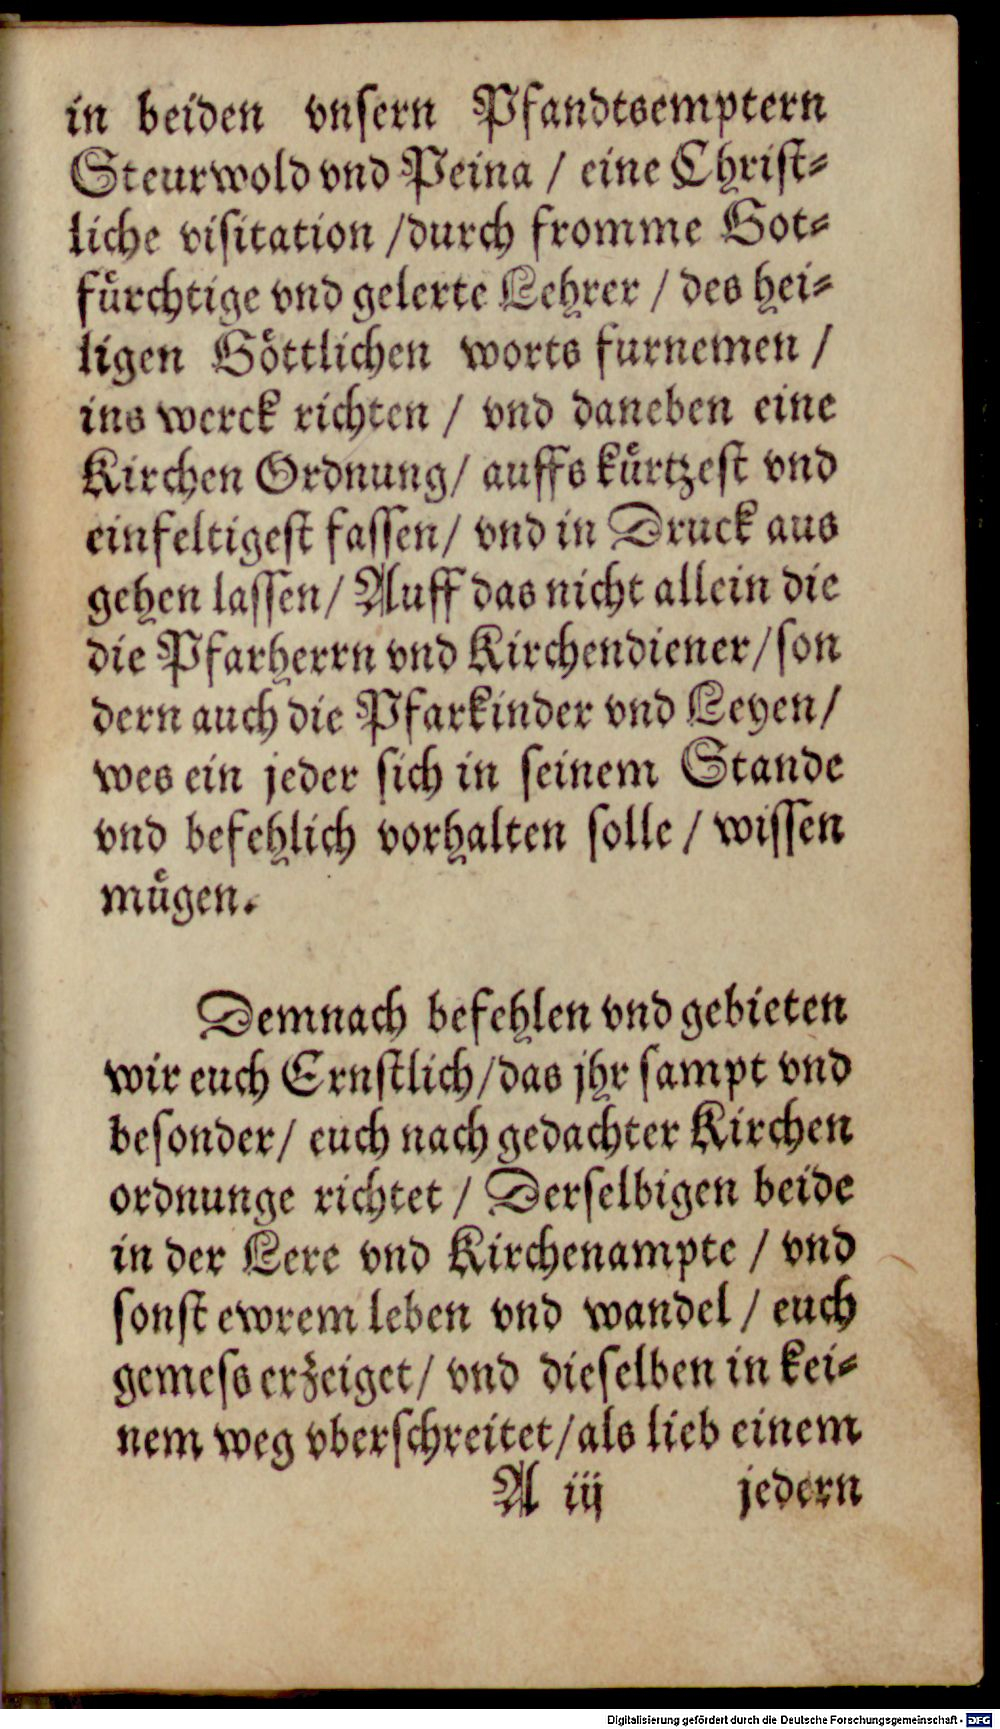 in beiden vnsern Pfandtsemptern
Steurwold vnd Peina / eine Christ-
liche visitation /durch fromme Got-
fuͤrchtige vnd gelerte Lehrer / des hei-
ligen Goͤttlichen worts furnemen /
ins werck richten / vnd daneben eine
Kirchen Ordnung/ auffs kuͤrtzest vnd
einfeltigest fassen/ vnd in Druck aus
gehen lassen/ Auff das nicht allein die
die Pfarherrn vnd Kirchendiener/son
dern auch die Pfarkinder vnd Leyen/
wes ein jeder sich in seinem Stande
vnd befehlich vorhalten solle / wissen
muͤgen.
Demnach befehlen vnd gebieten
wir euch Ernstlich/das jhr sampt vnd
besonder/ euch nach gedachter Kirchen
ordnunge richtet / Derselbigen beide
in der Lere vnd Kirchenampte / vnd
sonst ewrem leben vnd wandel / euch
gemess erzeiget/ vnd dieselben in kei-
nem weg vberschreitet/als lieb einem
A iij jedern
Digitalisierung gefördert durch die Deutsche Forschungsgemeinschaft - DFG